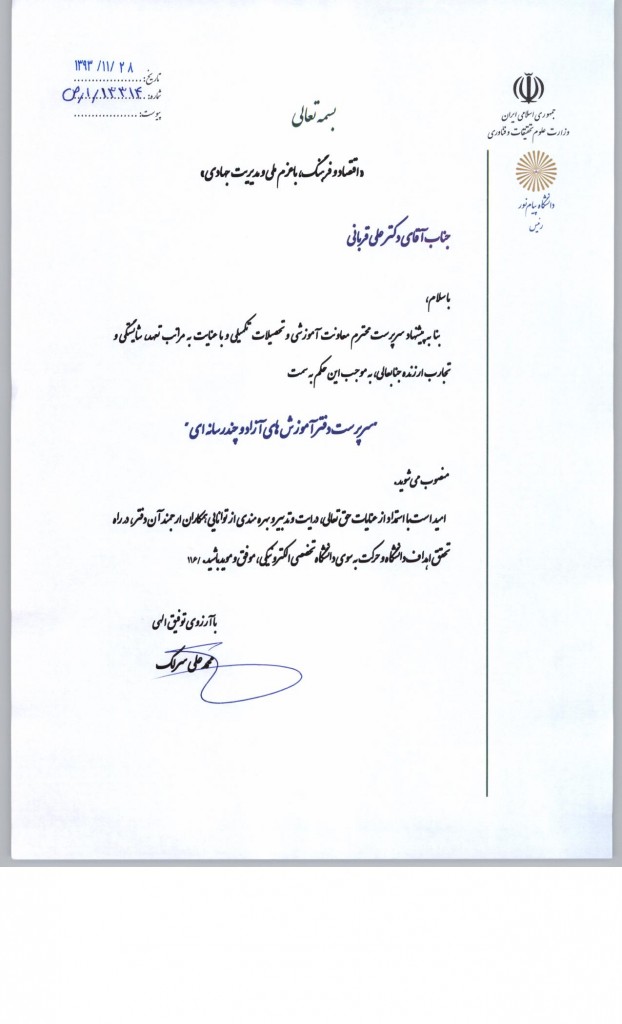 جمهوری اسلامی ایران
وزارت علوم تحقیقات و فناوری
دانشگاه پیام نور
رئیس
تاریخ: ۱۳۹۳/۱۱/۲۸
شماره:
پیوست:
بسمه تعالی
«اقتصاد و فرهنگ، با عزم ملی و مدیریت جهادی»
جناب آقای دکتر علی قربانی
با سلام،
بنا به پیشنهاد سرپرست محترم معاونت آموزشی و تحصیلات تکمیلی و با عنایت به مراتب تعهد، شایستگی و
تجارب ارزنده جنابعالی، به موجب این حکم به سمت
"سرپرست دفتر آموزش های آزاد و چند رسانه ای"
منصوب می شوید.
امید است با استمداد از عنایات حق تعالی، درایت و تدبیر و بهره مندی از توانایی همکاران ارجمند آن دفتر، در راه
تحقق اهداف دانشگاه و حرکت به سوی دانشگاه تخصصی الکترونیکی، موفق و موید باشید.
با آرزوی توفیق الهی
محمد علی سرلک